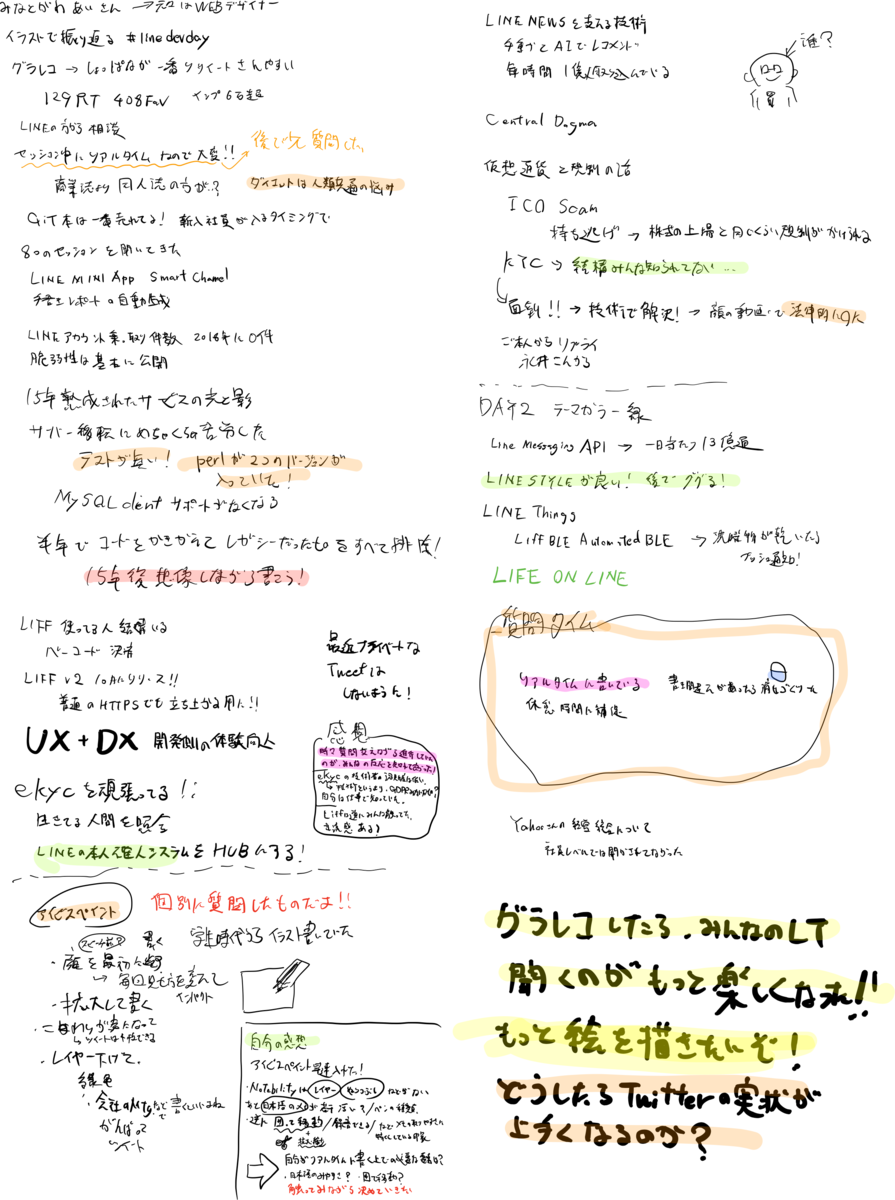 みなとがわ あいさん → 元はWEBデザイナー
イラストで振り返る #linedevday
グラレコ → しょっぱなが一番リツイートされやすい
129RT 408Fav インプ6万超
LINEの方から相談
セッション中にリアルタイムなので大変!!
後で少し質問した
商業誌より同人誌の方が??
ダイエットは人類共通の悩み
GiT本は一番売れてる! 新入社員が入るタイミングで
8つのセッションを聞いてきた
LINE MINI App Smart Channel
レポートの自動生成
LINEアカウント乗っ取り件数 2018年に0件
脆弱性は基本に公開
15年熟成されたサービスの光と影
サーバー移転にめちゃくちゃ苦労した
テストが無い! perlが2つのバージョンが
入っていた!
MySQL client サポートがなくなる
半年でコードをかきかえて レガシーだったものをすべて排除!
15年後想像しながら書こう!
LIFF 使ってる人 結構いる
バーコード 決済
LIFF v2 10月にリリース!!
普通のHTTPSでも立ち上がる用に!!
UX + DX 開発側の体験向上
ekycを頑張ってる!!
生きてる人間を照合
LINEの本人確認システムをHUBにする!
最近プライベートな
Tweetは
しないようた!
感想
時々質問交えながら進行してたのが、みんなの反応を知れて良かった!
ekycの技術者の認知度は低い
自分は仕事で知ってた。
Liffは逆にみんな触ってた
アイビスペイント
個別に質問したものだよ!!
学生時代からイラスト書いていた
・顔を最初に書く
→ 毎回見せ方を変えて
インパクト
・拡大して書く
・こまわりが変になって
・レイヤー下げて、
線色
がんばって
ツイート
自分の感想
アイビスペイント 早速入れた!
・Notabilityは レイヤー ぬりつぶし などがない
触ってみながら決めていきたい
LINE NEWSを支える技術
手動とAIでレコメンド
毎時間 1億取り込んでいる
誰?
Central Dogma
仮想通貨と規制の話
ICO Scam
持ち逃げ → 株式の上場と同じくらい規制がかけられる
KYC → 結構みんな知られてない…
面倒!! → 技術で解決! → 顔の動画で 法律的にOK
ご本人からリプライ
DAY2 テーマカラー緑
Line Messaging API → 一日当たり13億通
LINE STYLEが良い! 後でググる!
LINE Things
Liff BLE Automated BLE → 洗濯物が乾いたら
プッシュ通知!
LIFE ON LINE
質問タイム
リアルタイムに書いている
書き間違えがあったら 消しゴムツール
休憩時間に補足
Yahooさんの経営統合について
社員レベルでは聞かされてなかった
グラレコしたら、みんなのLT
聞くのがもっと楽しくなった!!
もっと絵を描きたいぞ!
どうしたらTwitterの実状が
上手くなるのか?